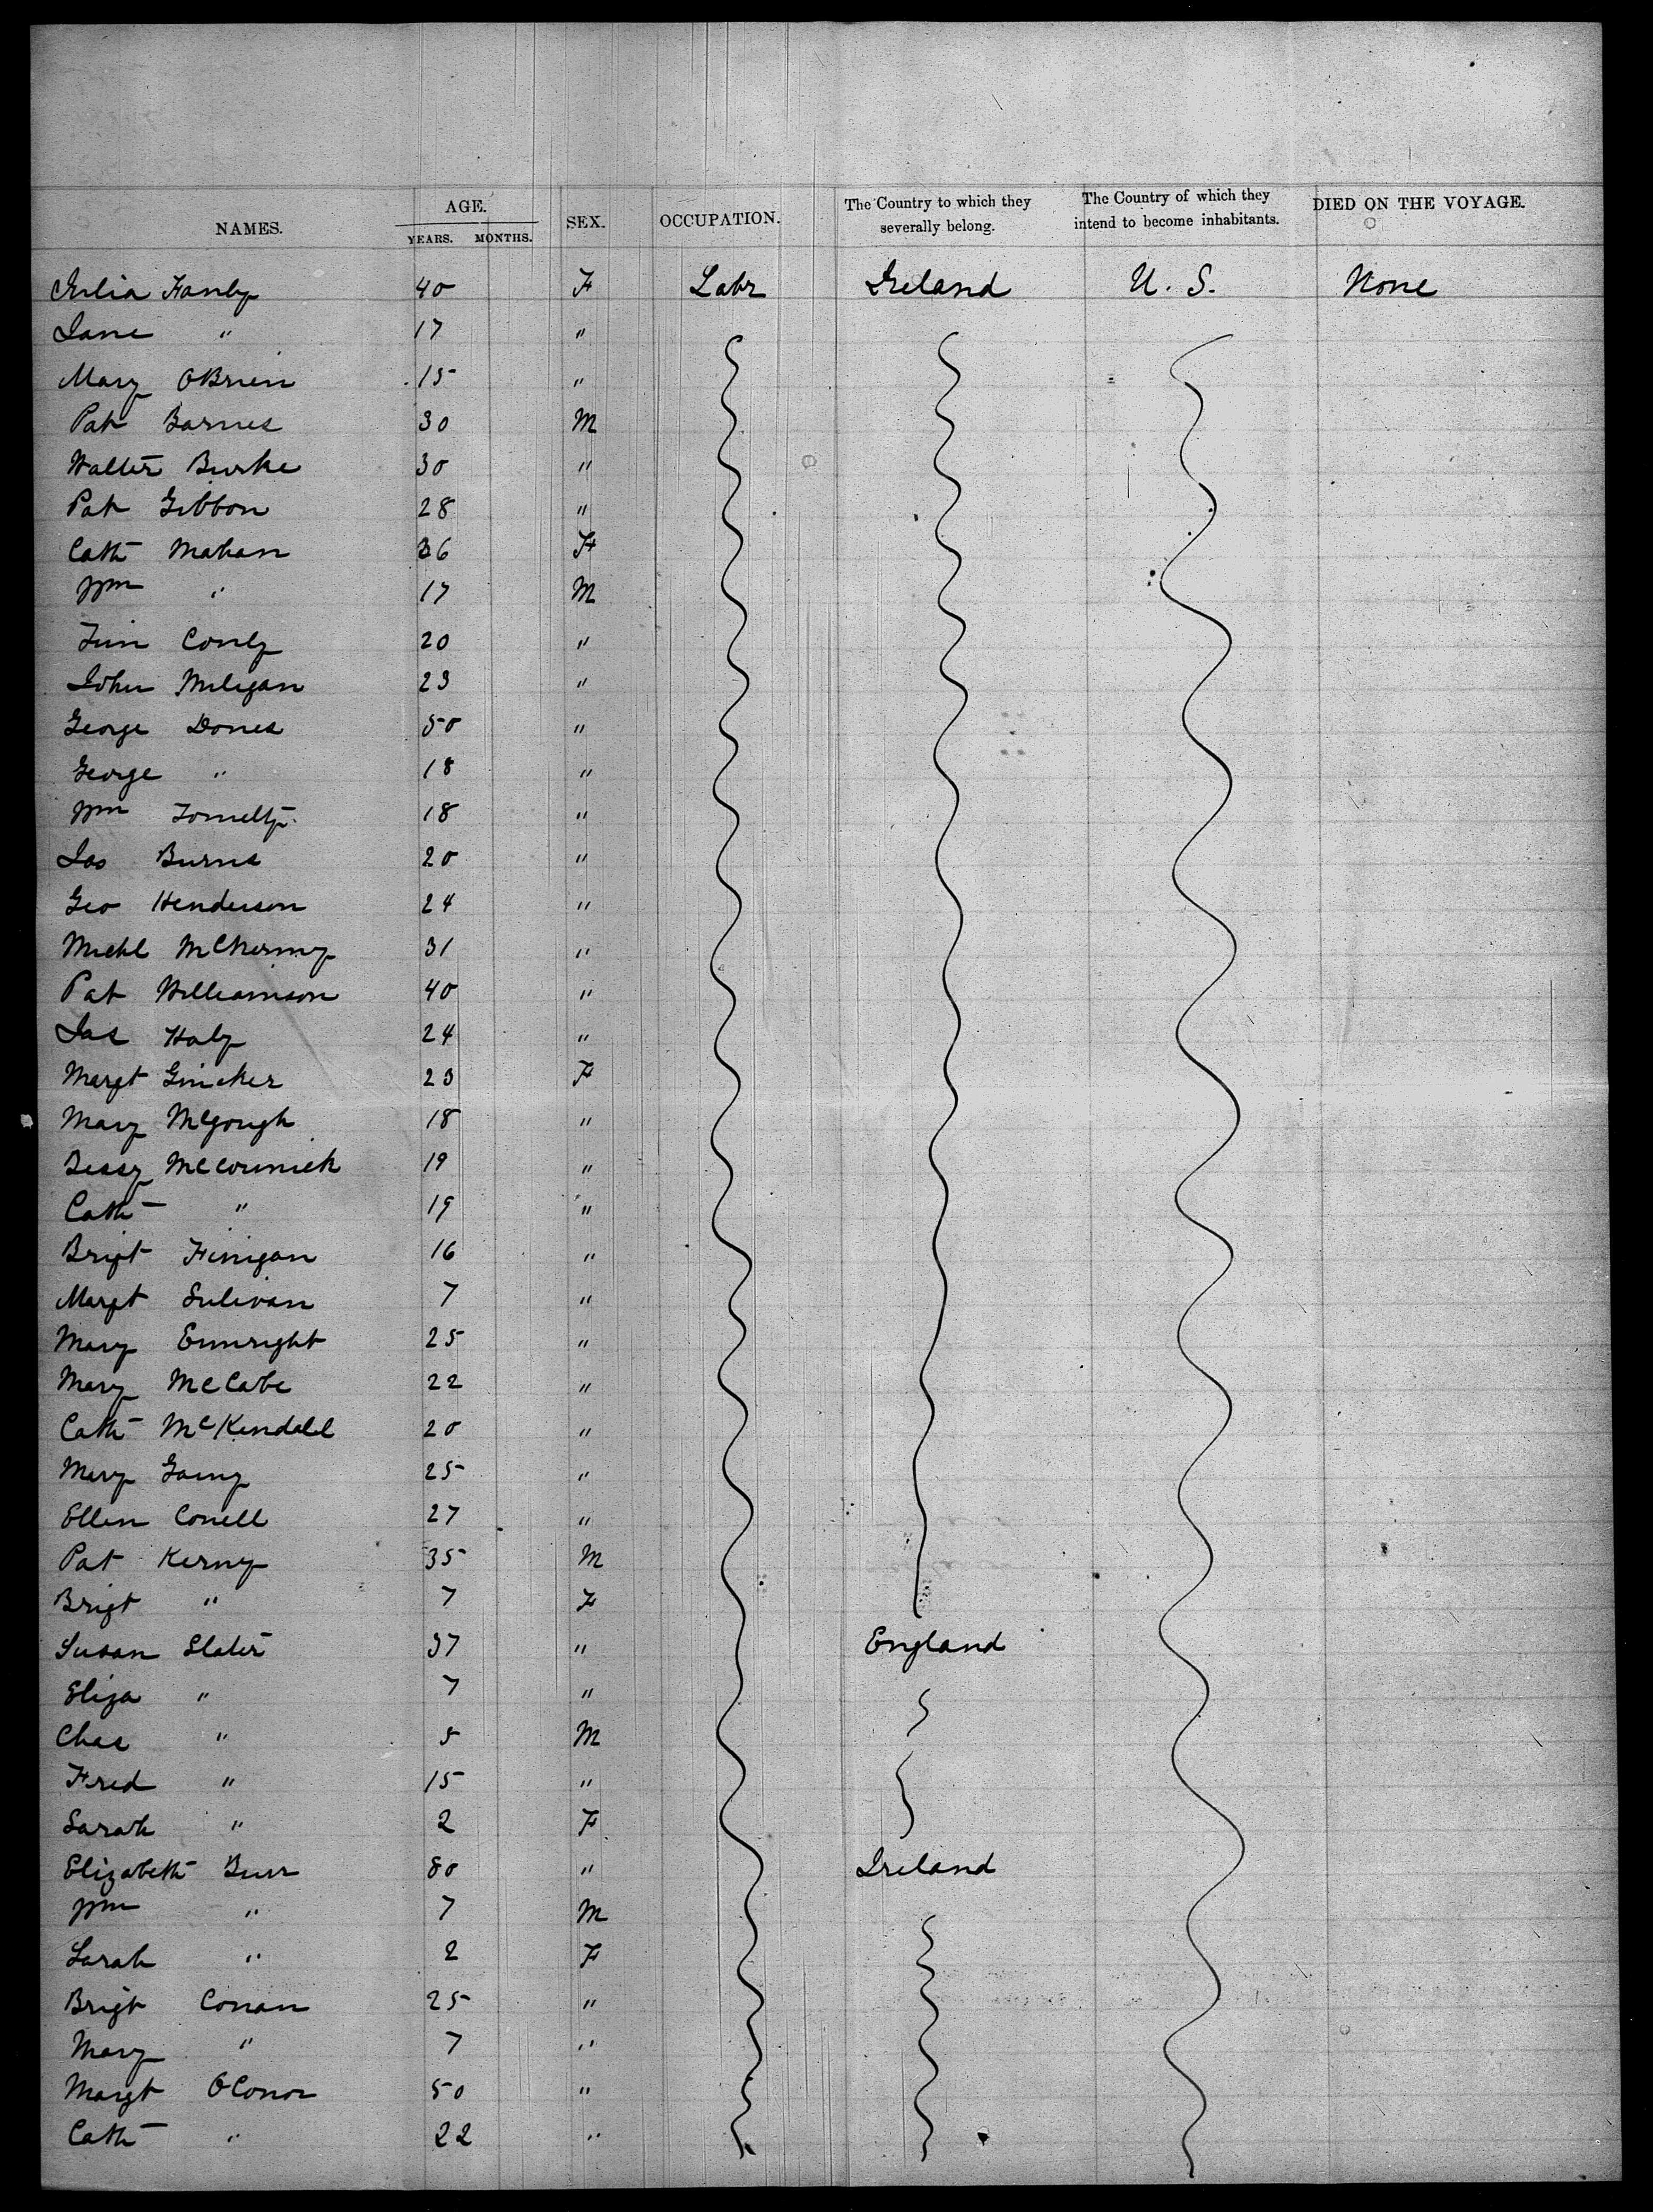 NAMES. AGE. SEX. OCCUPATION. The Country to which they severally belong. The Country of which they intend to become inhabitants. DIED ON THE VOYAGE.
YEARS. MONTHS.
Julia Hanly 40 F Labr Ireland U. S. None
Jane " 17 "
Mary OBrien 15 "
Pat Barnes 30 M
Walter Burke 30 "
Pat Gibbon 28 "
Cath Mahan 36 F
Wm " 17 M
Tim Conly 20 "
John Miligan 23 "
George Dones 50 "
George " 18 "
Wm Tomelty 18 "
Jas Burns 20 "
Geo Henderson 24 "
Michl McKerny 31 "
Pat Williamson 40 "
Jas Haly 24 "
Margt 23 F
Mary McGough 18 "
Bessy McCormick 19 "
Cath " 19 "
Brigt Finigan 16 "
Margt Sulivan 7 "
Mary Enwright 25 "
Mary McCabe 22 "
Cath McKendall 20 "
Mary 25 "
Ellen Conell 27 "
Pat Kerny 35 M
Brigt " 7 F
Susan Slater 37 " England
Eliza " 7 "
Chas " 5 M
Fred " 15 "
Sarah " 2 F
Elizabeth Burr 80 " Ireland
Wm " 7 M
Sarah " 2 F
Brigt Conan 25 "
Mary " 7 "
Margt OConor 50 "
Cath " 22 "